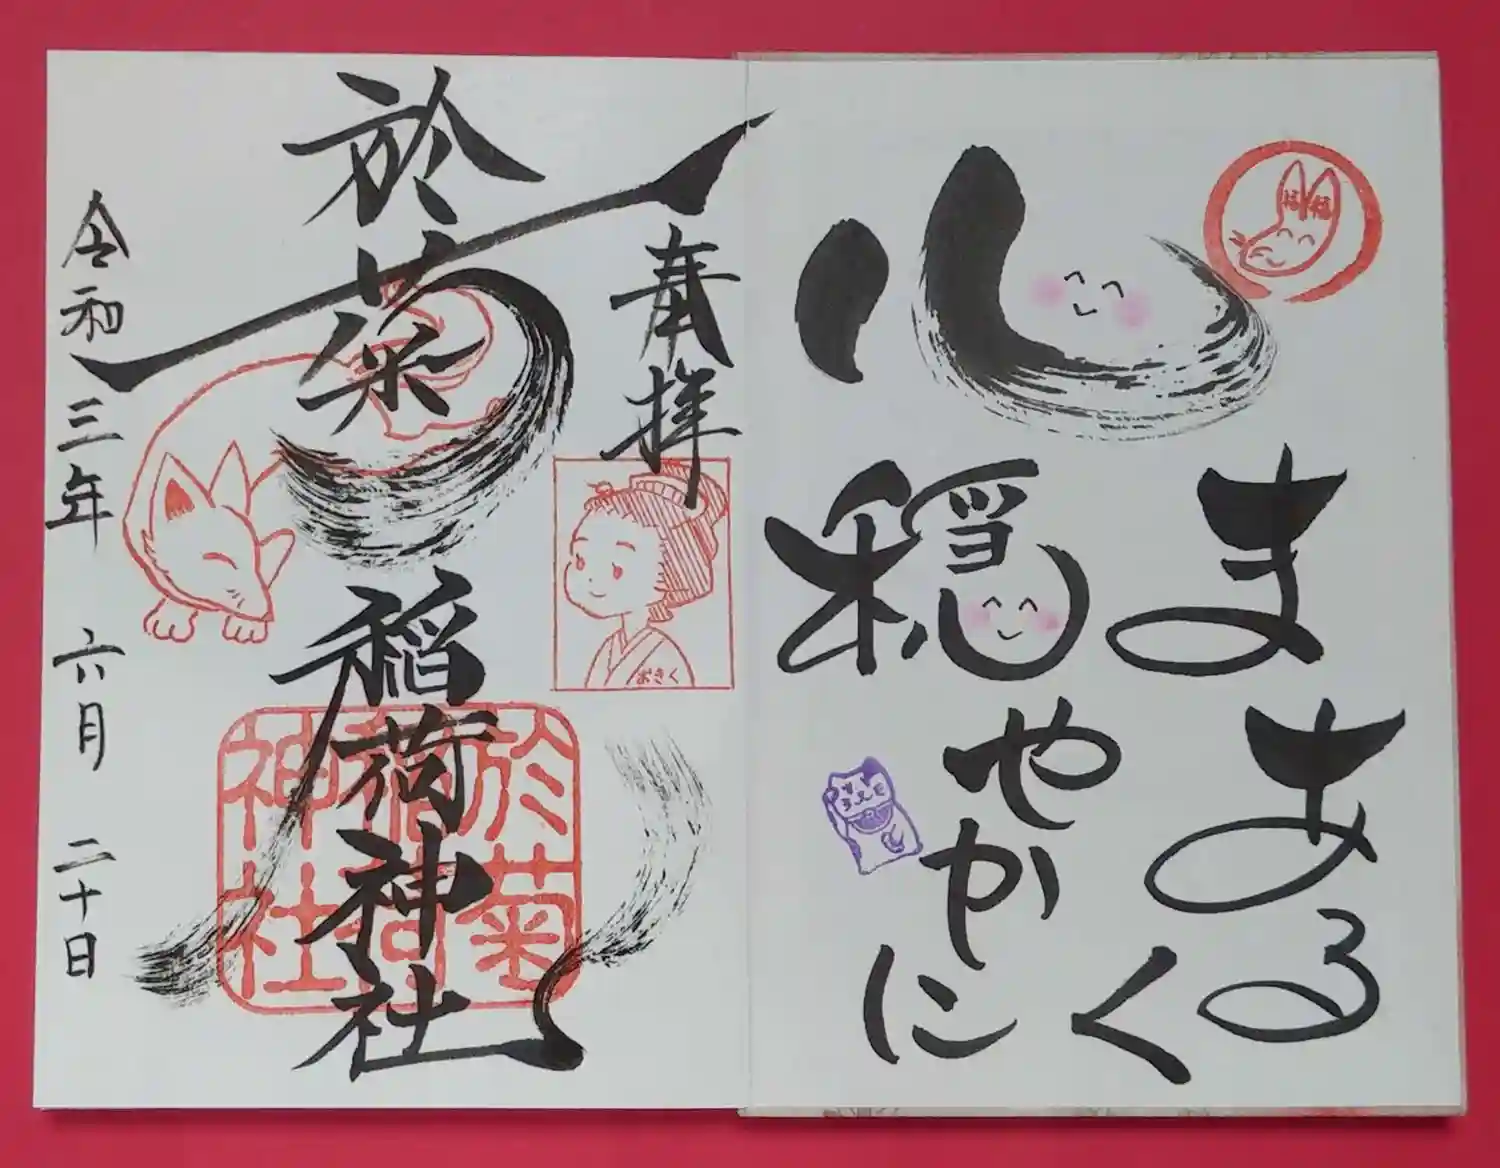 心
まあるく
穏やかに
福
福
奉拝
おきく
於菊稲荷神社
於菊
稲荷
神社
令和三年六月二十日